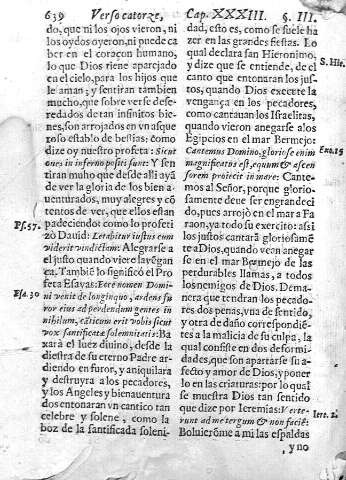 639 Verso catorze, Cap. XXXIII. §. III.
do, que ni los ojos vieron, ni
los oydos oyeron, ni puede ca
ber en el coraçon humano,
lo que Dios tiene aparejado
en el cielo, para los hijos que
le aman; y sentiran tambien
mucho, que sobre verse dese-
redados de tan infinitos bie-
nes, son arrojados en vn asque
roso establo de bestias; como
dize oy nuestro profeta: Sicut
oues in inferno positi sunt: Y sen-
tiran muho que desde alli ayã
de ver la gloria de los bien a-
uenturados, muy alegres y cõ
tentos de ver, que ellos estan
Ps. 57. padeciendo: como lo profeti-
zo Dauid: Lætabitur iustus cum
viderit vindictam: Alegrarse a
el justo quando viere la vẽgan
ça. Tambiẽ lo significò el Pro
feta Esayas: Ecce nomen Domi-
Esa. 30 ni venit de longinquo, ardens fu
ror eius ad perdendum gentes in
nihilum, cãticum erit vobis sicut
vox santificatæ solemnitatis: Ba
xará el juez diuino, desde la
diestra de su eterno Padre ar-
diendo en furor, y aniquilara
y destruyra a los pecadores,
y los Angeles y bienauentura
dos entonaran vn cantico tan
celebre y solene, como la
boz de la santificada soleni-
dad, esto es, como se suele ha
zer en las grandes fiestas. Lo
qual declara san Hieronimo,
S. Hie. y dize que se entiende, de el
canto que entonaran los jus-
tos, quando Dios execute la
vengança en los pecadores,
como cantauan los Israelitas,
quando vieron anegarse a los
Egipcios en el mar Bermejo:
Exo. 15 Cantemus Domino, gloriose enim
magnificatus est, equum & ascen
sorem proiecit in mare: Cante-
mos al Señor, porque glorio-
samente deue ser engrandeci
do, pues arrojò en el mar a Fa
raon, ya todo su exercito: assi
los justos cantarã gloriosamẽ
te a Dios, quando vean anegar
se en el mar Bermejo de las
perdurables llamas, a todos
los nemigos de Dios. De ma-
nera que tendran los pecado-
res dos penas, vna de sentido,
y otra de daño correspondiẽ-
tes a la malicia de su culpa, la
qual consiste en dos deformi-
dades, que son apartarse su a-
fecto y amor de Dios, y poner
lo en las criaturas: por lo qual
se muestra Dios tan sentido
que dize por Ieremias: Verte-
Iere. 2. runt ad me tergum & non faciẽ:
Boluierõme a mi las espaldas
y no